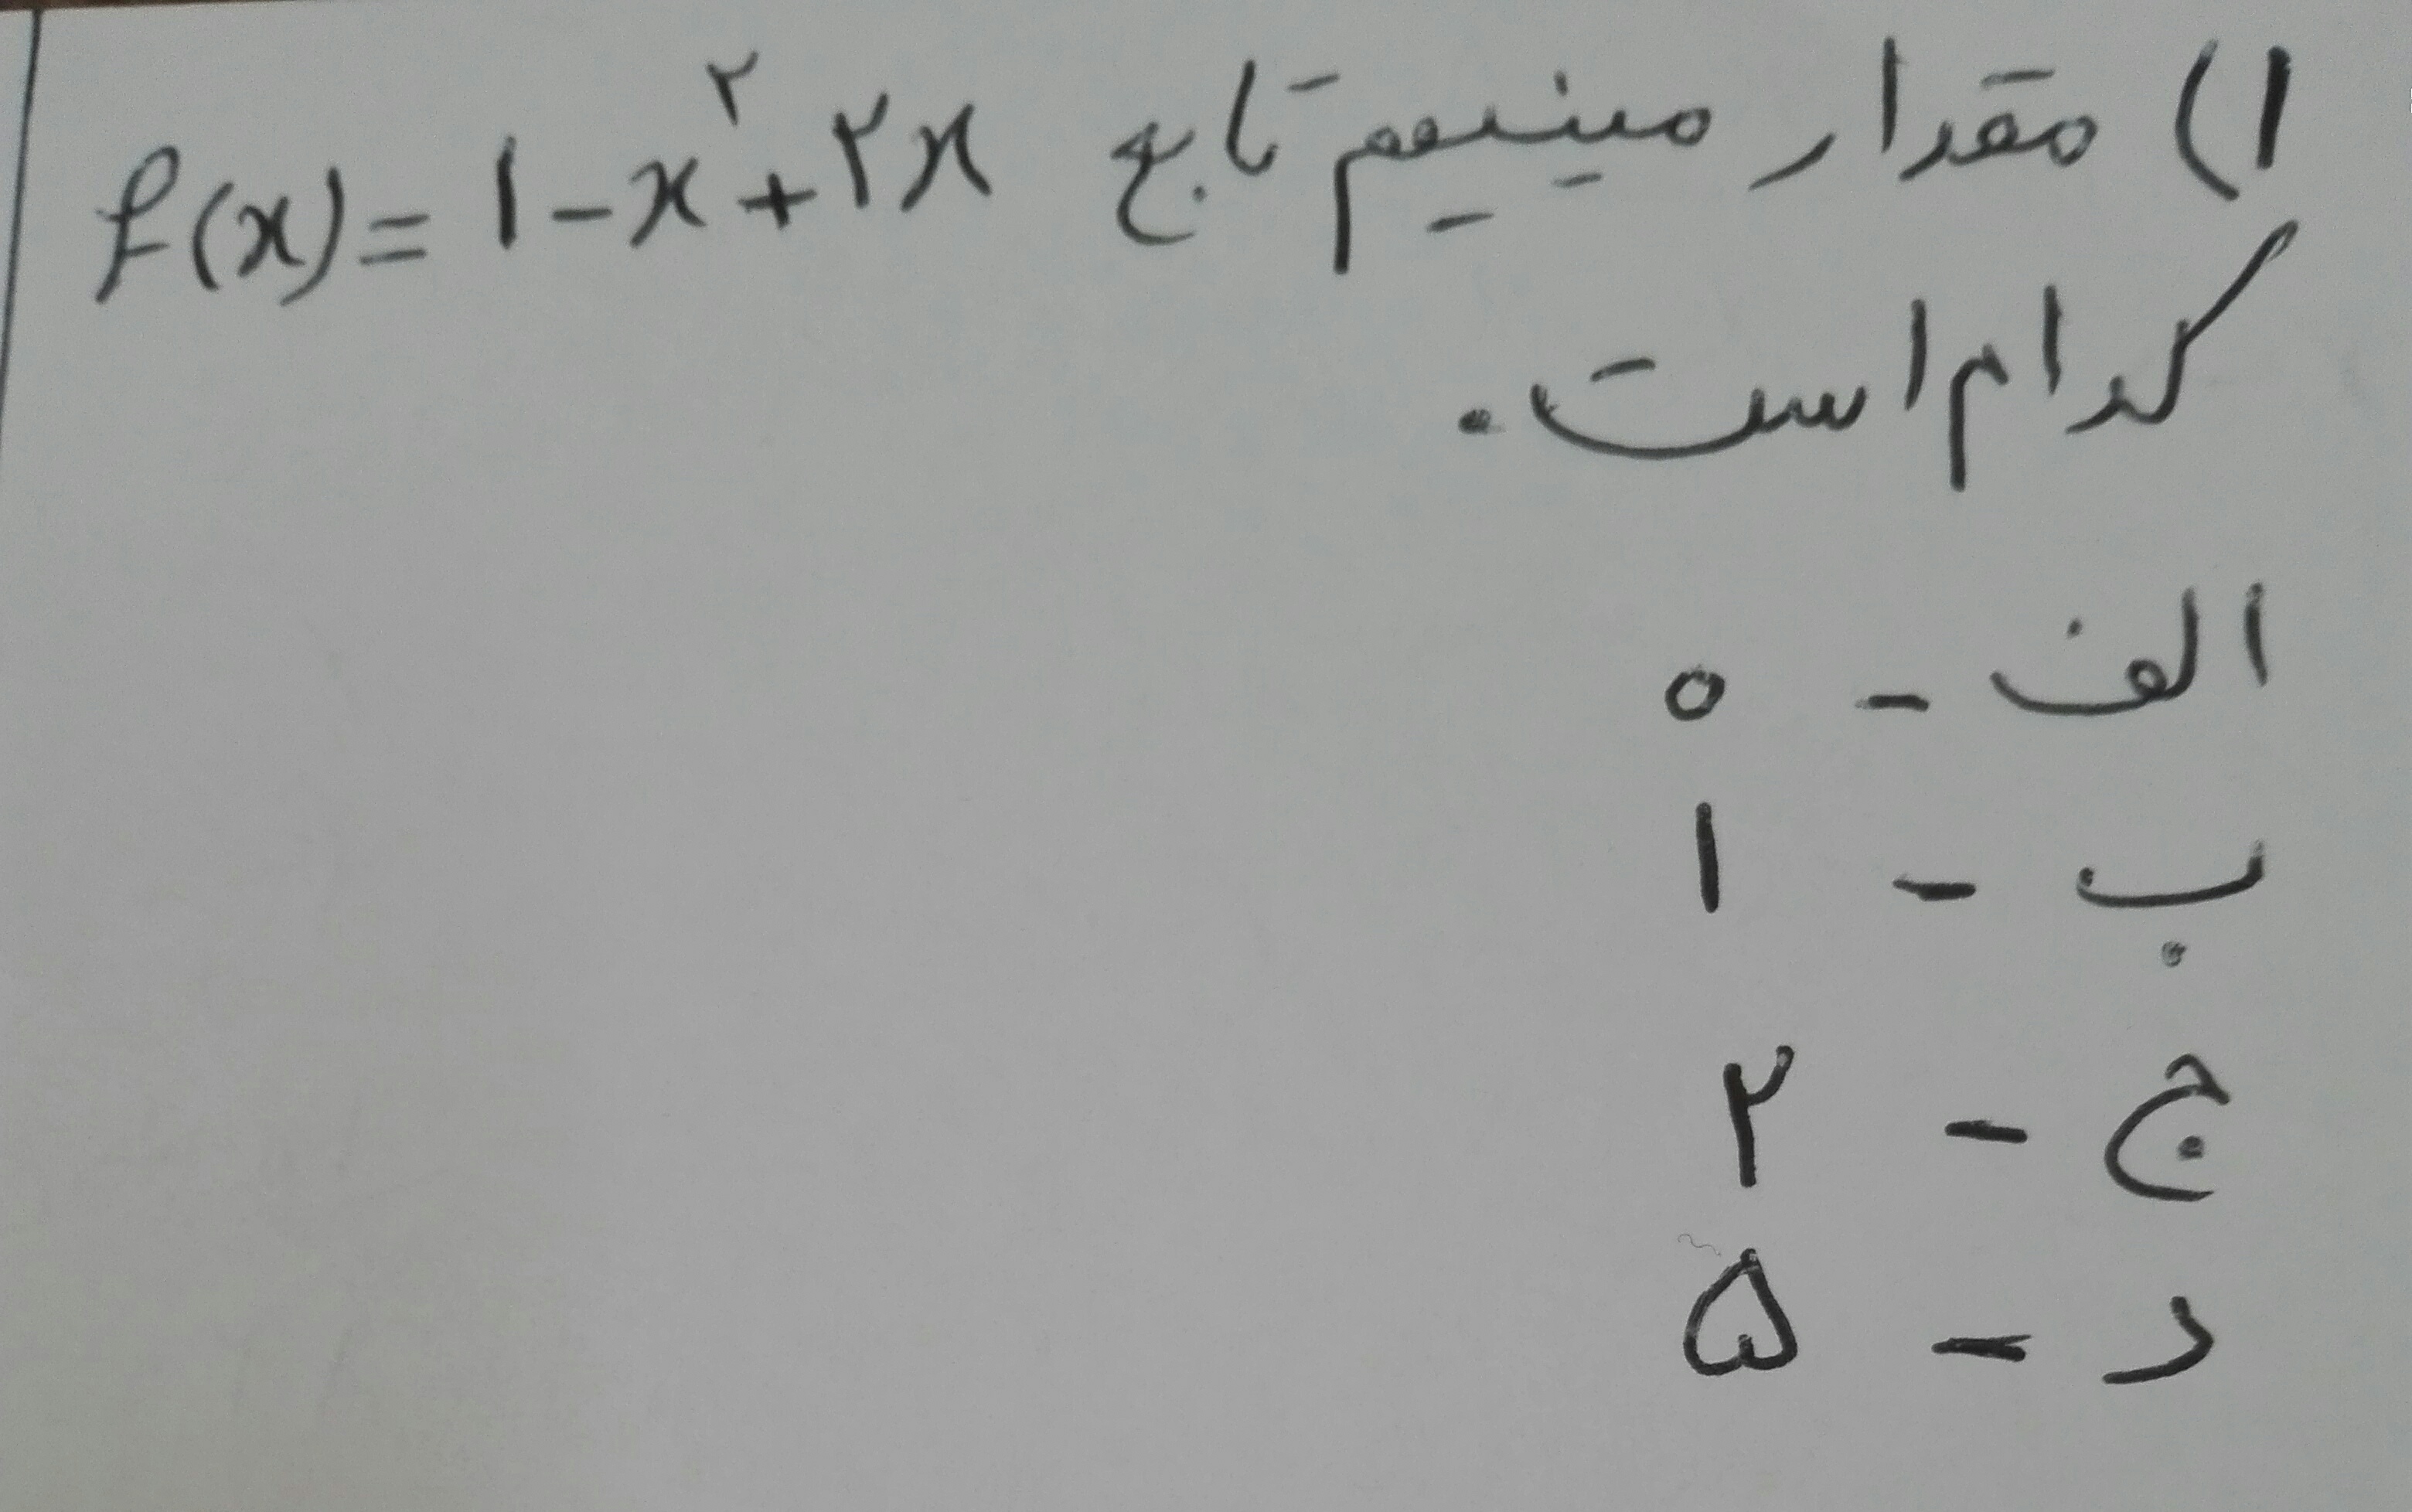 ۱) مقدار مینیمم تابع f(x)= ۱-x^۲+۲x
کدام است.
الف - ۰
ب - ۱
ج - ۲
د - ۵